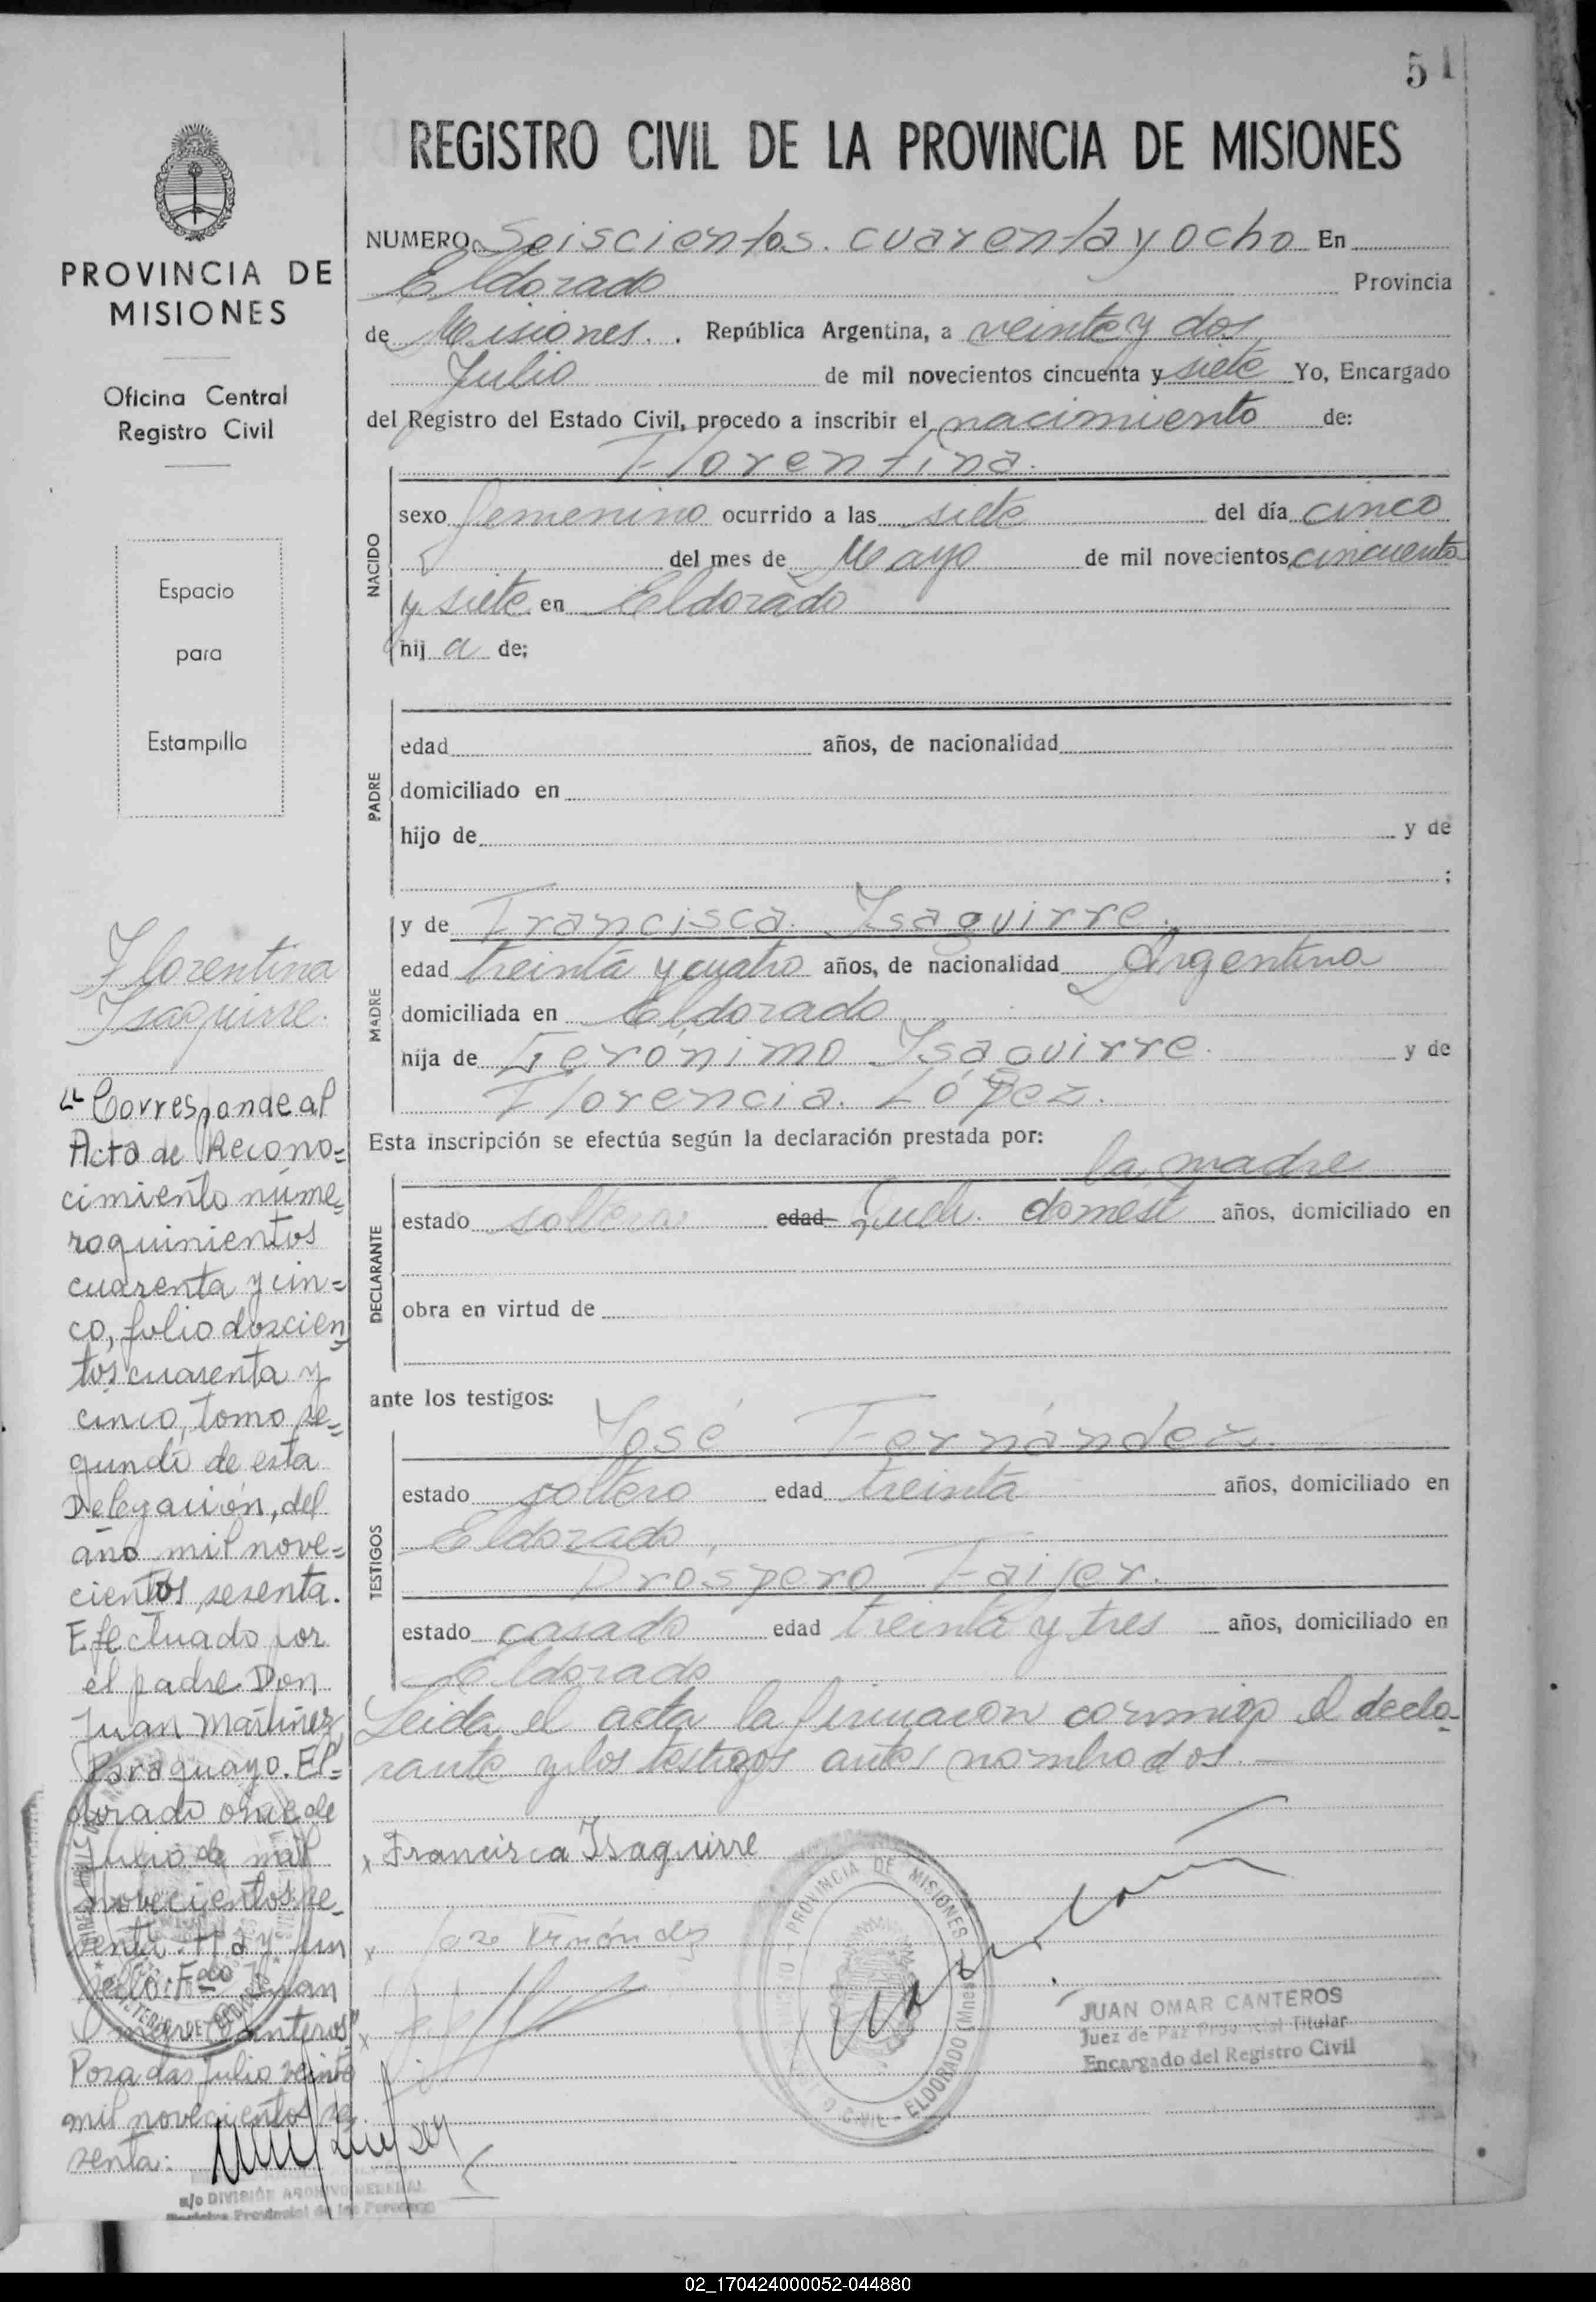 51
REGISTRO CIVIL DE LA PROVINCIA DE MISIONES
PROVINCIA DE
MISIONES
Oficina Central
Registro Civil
Espacio
para
Estampilla
NUMERO Seiscientos cuarenta y ocho En
Eldorado Provincia
de Misiones. República Argentina, a veinte y dos
Julio de mil novecientos cincuenta y siete Yo, Encargado
del Registro del Estado Civil, procedo a inscribir el nacimiento de:
Florentina.
NACIDO
sexo femenino ocurrido a las siete del día cinco
del mes de Mayo de mil novecientos cincuenta
y siete en Eldorado
hij a de;
PADRE
edad años, de nacionalidad
domiciliado en
hijo de y de
;
MADRE
y de Francisca Isaguirre.
edad treinta y cuatro años, de nacionalidad Argentina
domiciliada en Eldorado
hija de Gerónimo Isaguirre. y de
Florencia López.
Esta inscripción se efectúa según la declaración prestada por:
la madre
DECLARANTE
estado soltera edad domest años, domiciliado en
obra en virtud de
ante los testigos:
TESTIGOS
José Fernández.
estado soltero edad treinta años, domiciliado en
Eldorado,
Próspero
estado casado edad treinta y tres años, domiciliado en
Eldorado
Leida el acta la firmaron conmigo el decla-
rante y los testigos antes nombrados.—
x Francisca Isaguirre
x
x
PROVINCIA DE MISIONES
CIVIL - ELDORADO (Mnes
JUAN OMAR CANTEROS
Juez de Paz Titular
Encargado del Registro Civil
Florentina
Isaguirre.
"Corresponde al
Acta de Recono=
cimiento núme=
ro quinientos
cuarenta y cin=
co, folio doscien
tos cuarenta y
cinco, tomo se=
gundo de esta
Delegación, del
año mil nove=
cientos sesenta.
Efectuado por
el padre Don
Juan Martínez
Paraguayo. El=
dorado once de
Julio de mil
novecientos se=
senta. Hay un
sello: Fdo Juan
Omar Canteros"
Posadas Julio veinte
mil novecientos se
senta:
a/c DIVISIÓN ARCHIVO GENERAL
Registro Provincial de las Personas
02_170424000052-044880